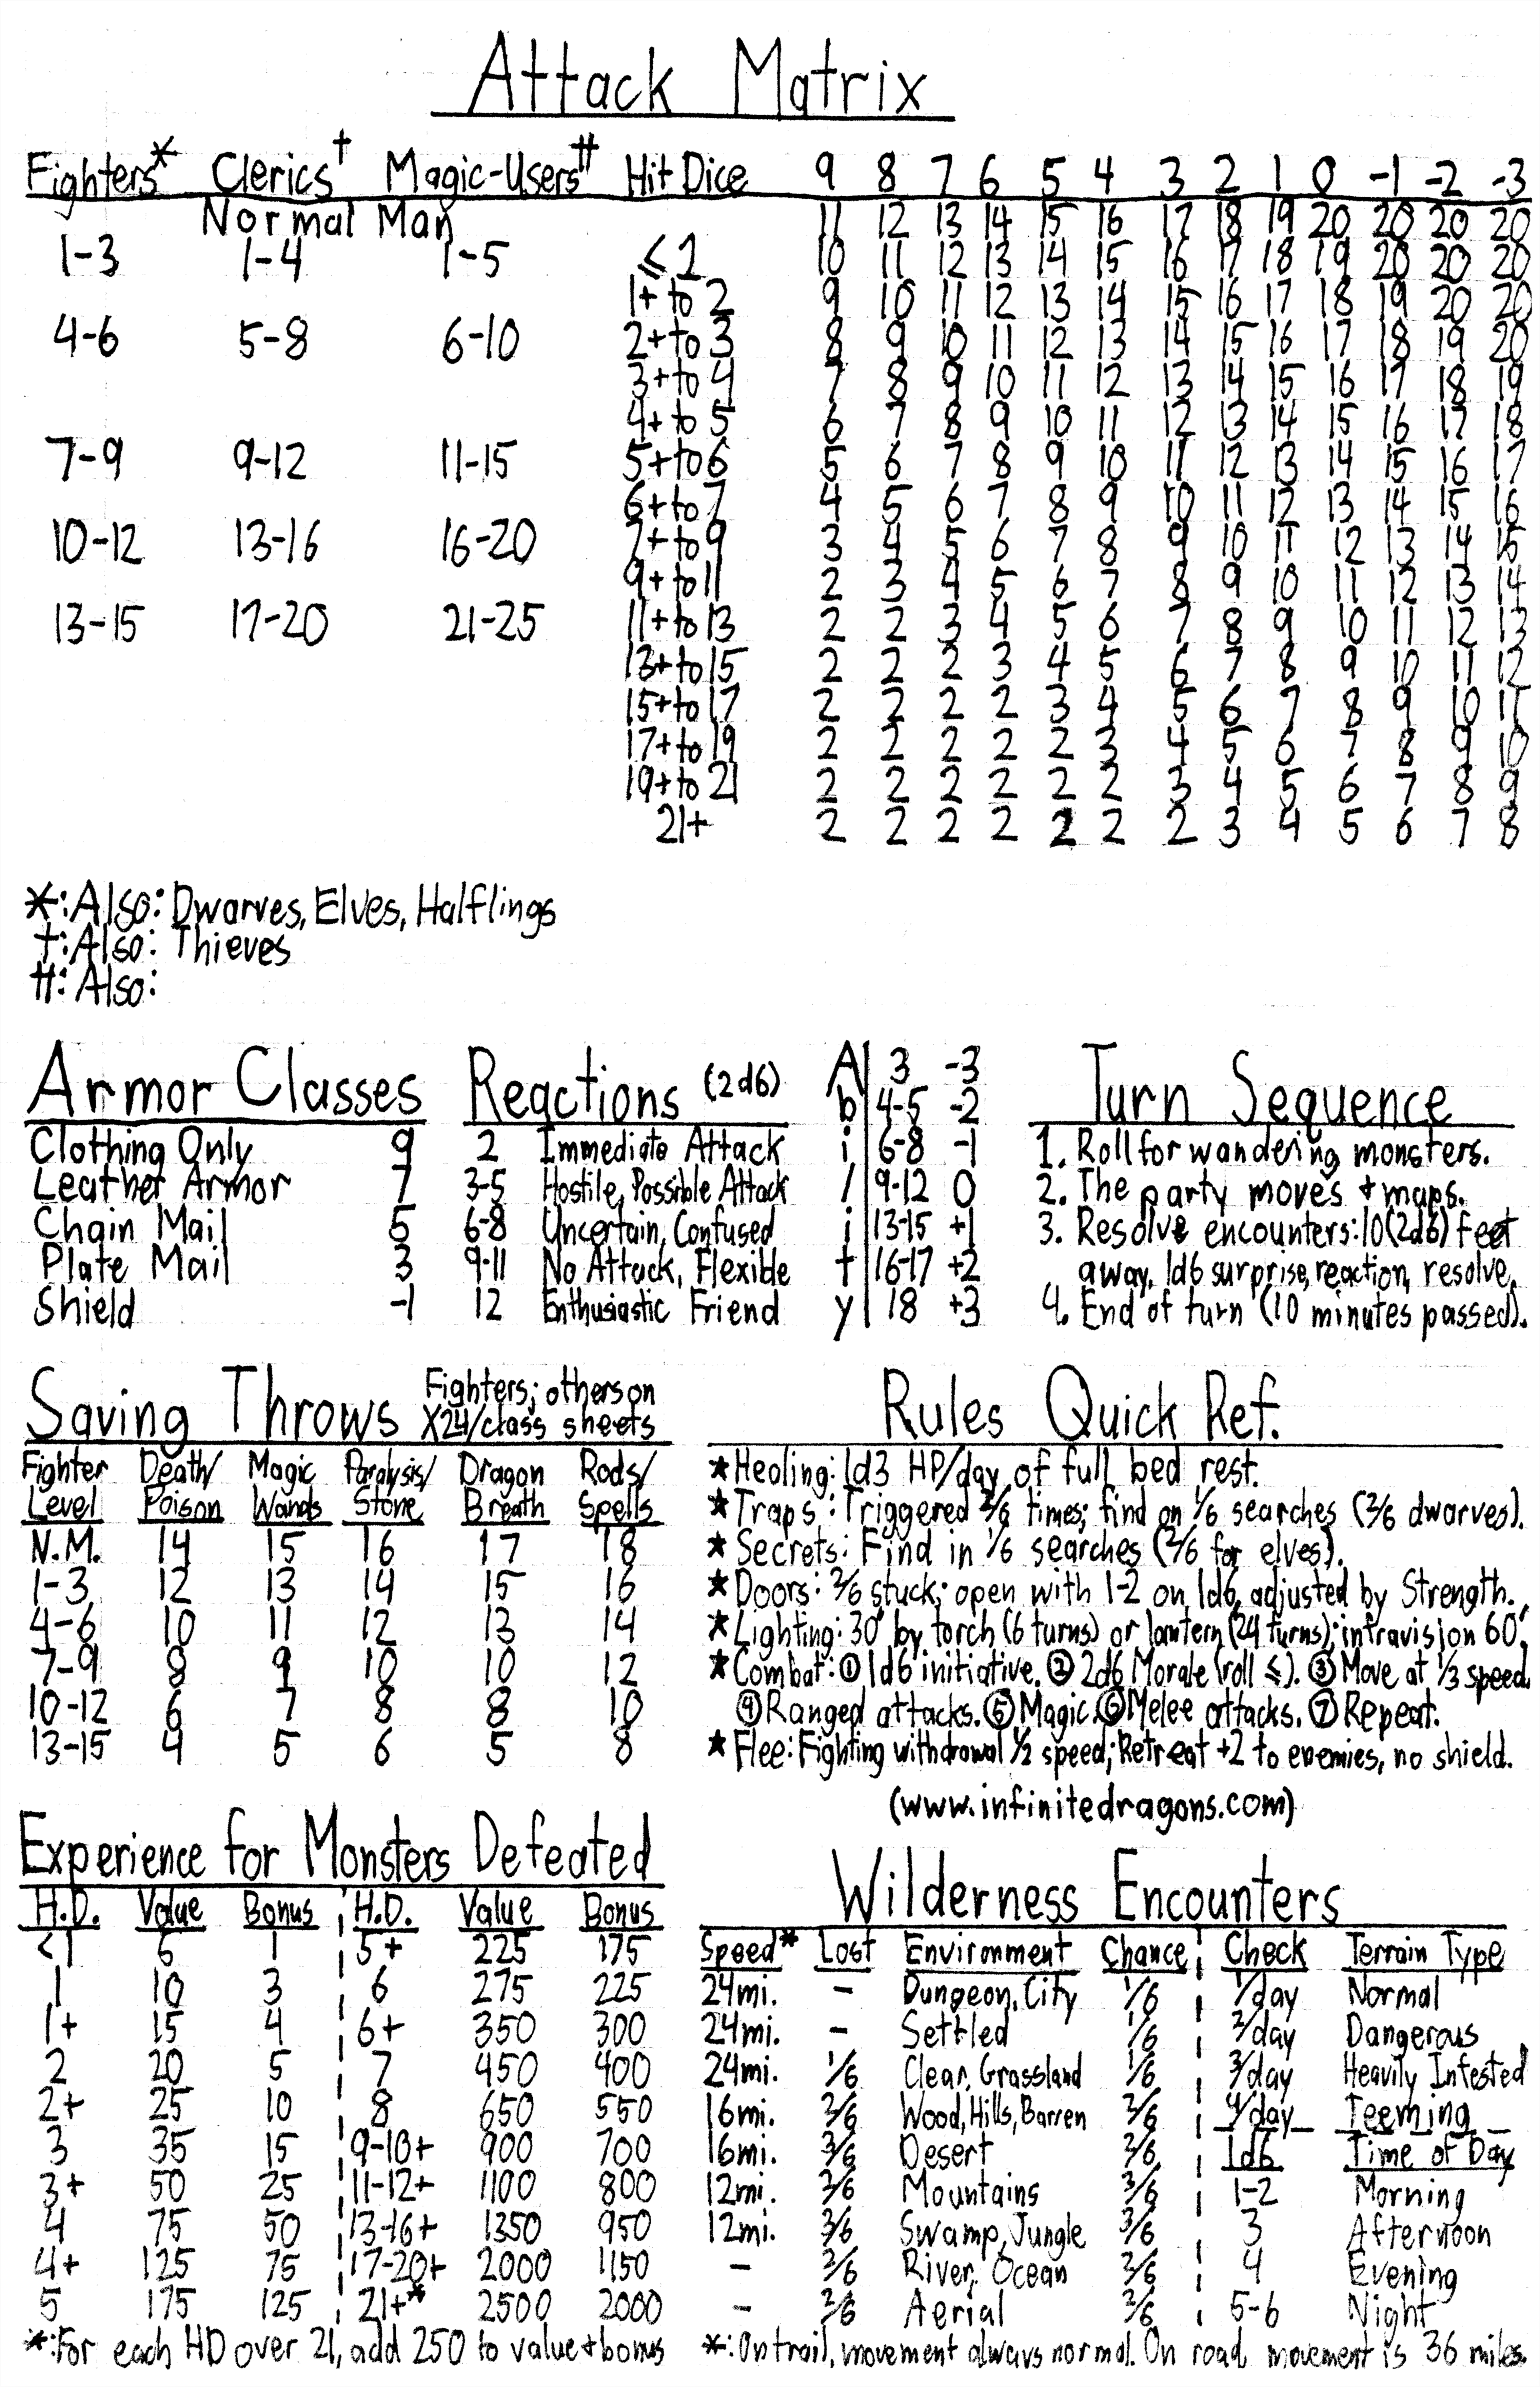 Attack Matrix
Fighters* Clerics† Magic-Users⧺ Hit Dice 9 8 7 6 5 4 3 2 1 0 -1 -2 -3
Normal Man 11 12 13 14 15 16 17 18 19 20 20 20 20
1-3 1-4 1-5 ≤1 10 11 12 13 14 15 16 17 18 19 20 20 20
1+ to 2 9 10 11 12 13 14 15 16 17 18 19 20 20
4-6 5-8 6-10 2+ to 3 8 9 10 11 12 13 14 15 16 17 18 19 20
3+ to 4 7 8 9 10 11 12 13 14 15 16 17 18 19
4+ to 5 6 7 8 9 10 11 12 13 14 15 16 17 18
7-9 9-12 11-15 5+ to 6 5 6 7 8 9 10 11 12 13 14 15 16 17
6+ to 7 4 5 6 7 8 9 10 11 12 13 14 15 16
10-12 13-16 16-20 7+ to 9 3 4 5 6 7 8 9 10 11 12 13 14 15
9+ to 11 2 3 4 5 6 7 8 9 10 11 12 13 14
13-15 17-20 21-25 11+ to 13 2 2 3 4 5 6 7 8 9 10 11 12 13
13+ to 15 2 2 2 3 4 5 6 7 8 9 10 11 12
15+ to 17 2 2 2 2 3 4 5 6 7 8 9 10 11
17+ to 19 2 2 2 2 2 3 4 5 6 7 8 9 10
19+ to 21 2 2 2 2 2 2 3 4 5 6 7 8 9
21+ 2 2 2 2 2 2 2 3 4 5 6 7 8
*: Also: Dwarves, Elves, Halflings
†: Also: Thieves
⧺: Also:
Armor Classes
Clothing Only 9
Leather Armor 7
Chain Mail 5
Plate Mail 3
Shield -1
Reactions (2d6)
2 Immediate Attack
3-5 Hostile, Possible Attack
6-8 Uncertain, Confused
9-11 No Attack, Flexible
12 Enthusiastic Friend
Ability
3 -3
4-5 -2
6-8 -1
9-12 0
13-15 +1
16-17 +2
18 +3
Turn Sequence
1. Roll for wandering monsters.
2. The party moves + maps.
3. Resolve encounters: 10(2d6) feet
away, 1d6 surprise, reaction, resolve.
4. End of turn (10 minutes passed).
Saving Throws Fighters; others on
X24/class sheets
Fighter Death/ Magic Paralysis/ Dragon Rods/
Level Poison Wands Stone Breath Spells
N.M. 14 15 16 17 18
1-3 12 13 14 15 16
4-6 10 11 12 13 14
7-9 8 9 10 10 12
10-12 6 7 8 8 10
13-15 4 5 6 5 8
Rules Quick Ref.
*Healing: 1d3 HP/day of full bed rest.
*Traps: Triggered 2/6 times; find on 1/6 searches (2/6 dwarves).
*Secrets: Find in 1/6 searches (2/6 for elves).
*Doors: 2/6 stuck; open with 1-2 on 1d6, adjusted by Strength.
*Lighting: 30' by torch (6 turns) or lantern (24 turns); infravision 60'.
*Combat: ① 1d6 initiative. ② 2d6 Morale (roll ≤). ③ Move at 1/3 speed.
④ Ranged attacks. ⑤ Magic. ⑥ Melee attacks. ⑦ Repeat.
*Flee: Fighting withdrawal 1/2 speed; Retreat +2 to enemies, no shield.
(www.infinitedragons.com)
Experience for Monsters Defeated
H.D. Value Bonus H.D. Value Bonus
<1 6 1 5+ 225 175
1 10 3 6 275 225
1+ 15 4 6+ 350 300
2 20 5 7 450 400
2+ 25 10 8 650 550
3 35 15 9-10+ 900 700
3+ 50 25 11-12+ 1100 800
4 75 50 13-16+ 1350 950
4+ 125 75 17-20+ 2000 1150
5 175 125 21+* 2500 2000
*: For each HD over 21, add 250 to value + bonus
Wilderness Encounters
Speed* Lost Environment Chance Check Terrain Type
24mi. - Dungeon, City 1/6 1/day Normal
24mi. - Settled 1/6 2/day Dangerous
24mi. 1/6 Clear, Grassland 1/6 3/day Heavily Infested
16mi. 2/6 Wood, Hills, Barren 2/6 4/day Teeming
16mi. 3/6 Desert 2/6 1d6 Time of Day
12mi. 2/6 Mountains 3/6 1-2 Morning
12mi. 3/6 Swamp, Jungle 3/6 3 Afternoon
- 2/6 River, Ocean 2/6 4 Evening
- 2/6 Aerial 2/6 5-6 Night
*: On trail, movement always normal. On road movement is 36 miles.